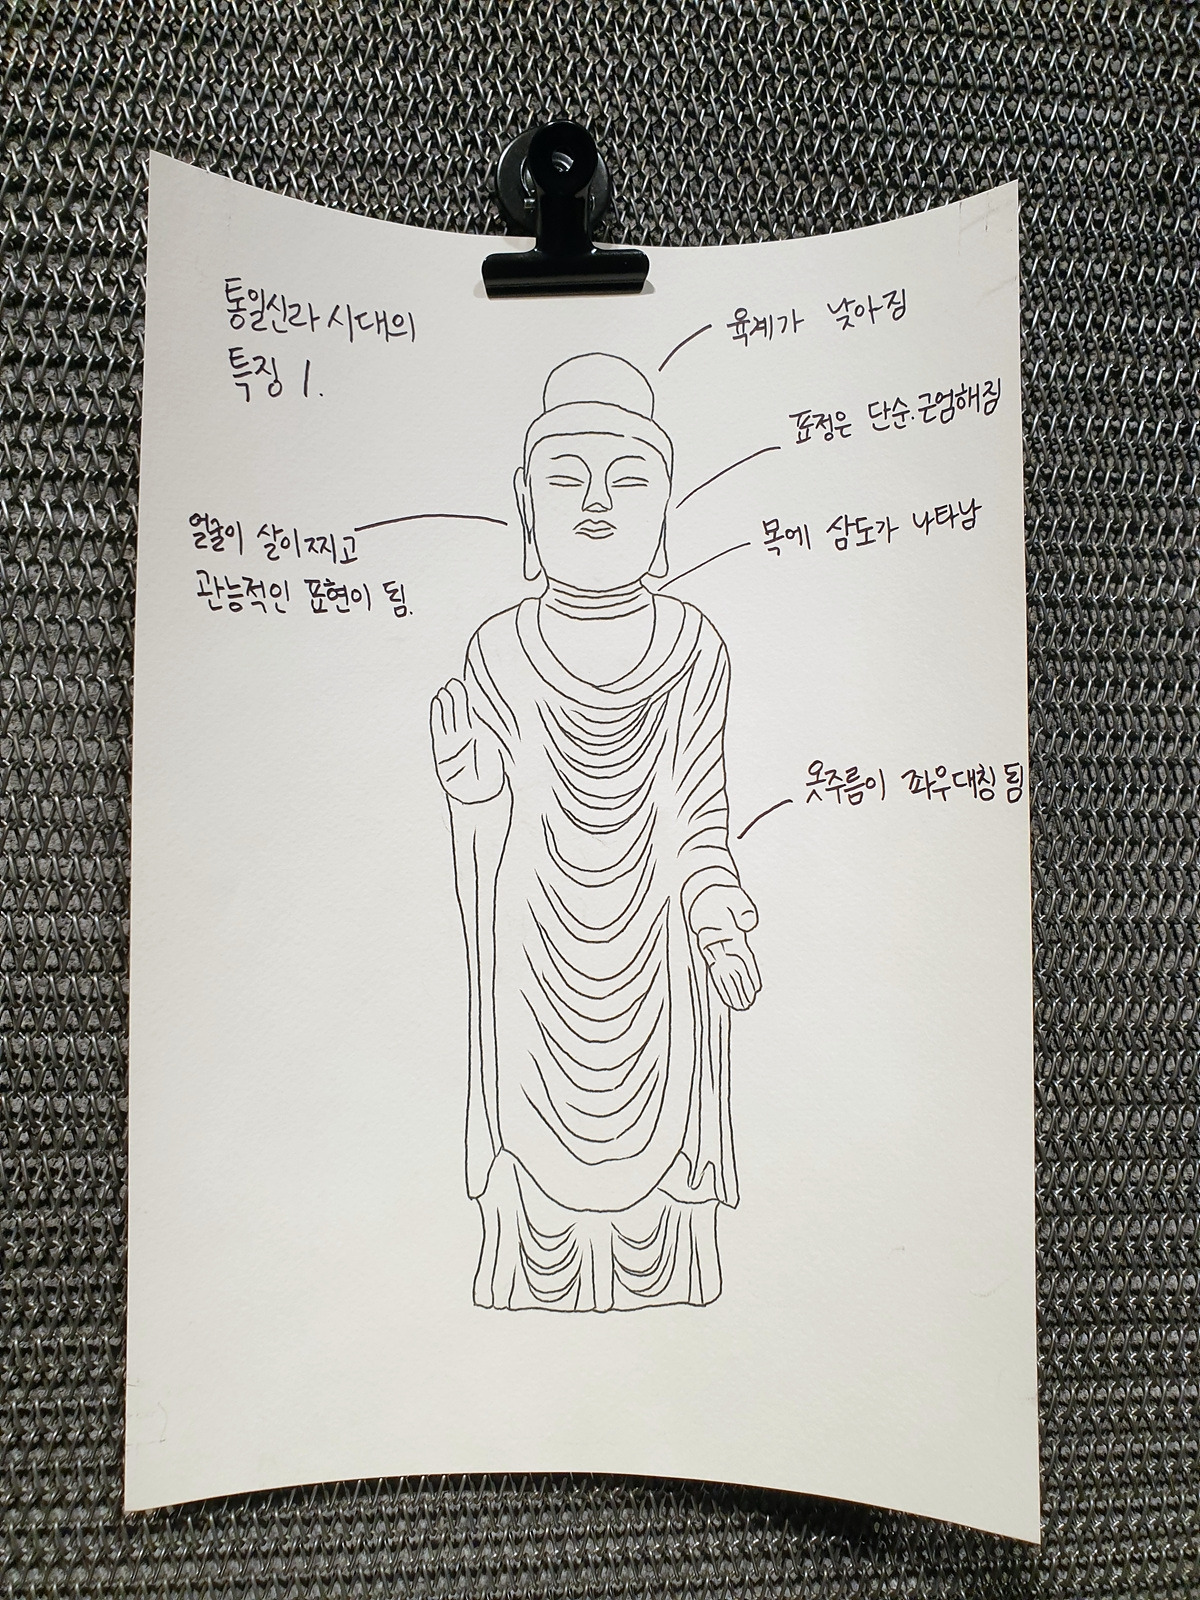 통일신라 시대의
특징 1.
육계가 낮아짐
표정은 단순.근엄해짐
얼굴이 살이찌고
관능적인 표현이 됨.
목에 삼도가 나타남
옷주름이 좌우대칭 됨